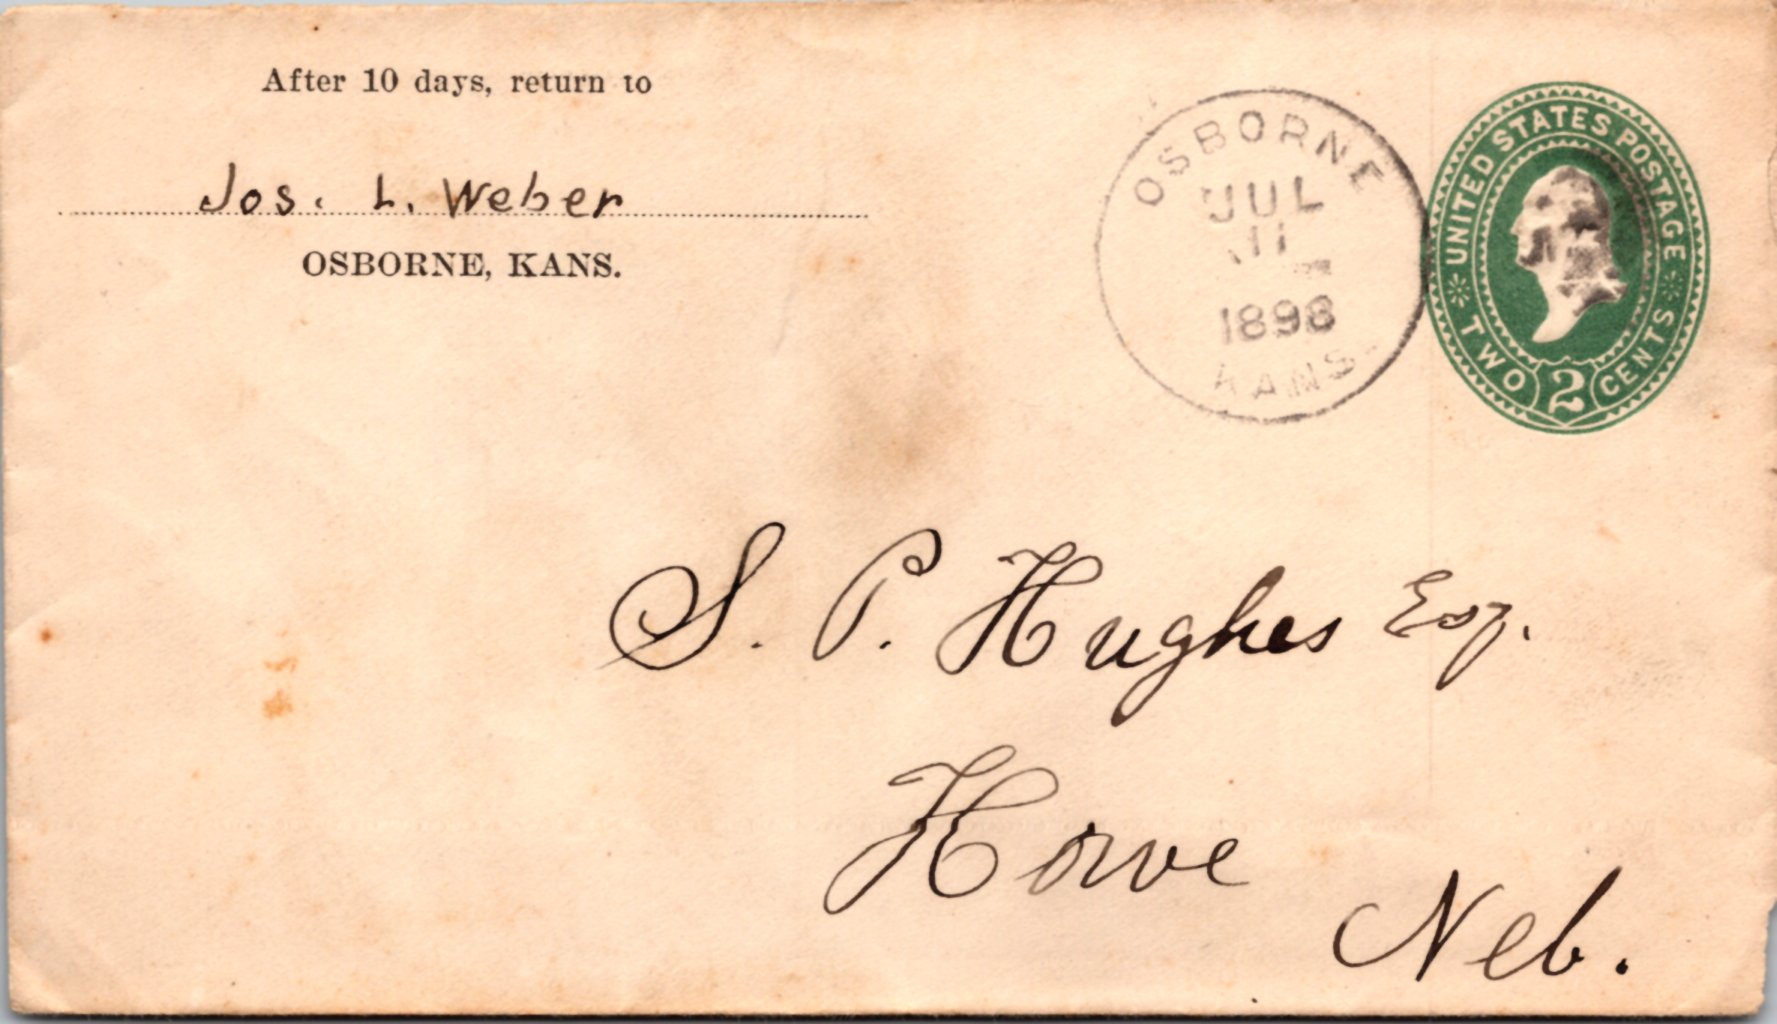 After 10 days, return to
Jos. L. Weber
OSBORNE, KANS.
OSBORNE
JUL
11
1898
KANS
UNITED STATES POSTAGE
TWO 2 CENTS
S. P. Hughes Esq.
Howe
Neb.